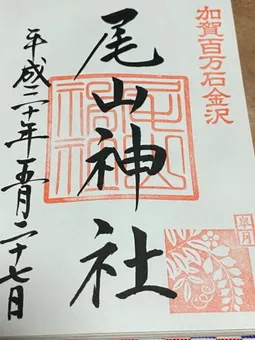 加賀百万石金沢
尾山神社
皐月
平成三十年五月二十七日